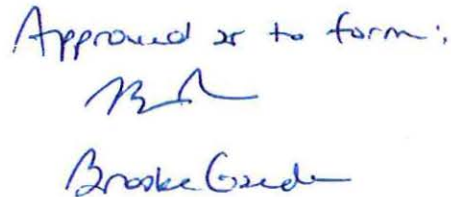 Approved as to form:
Brooke